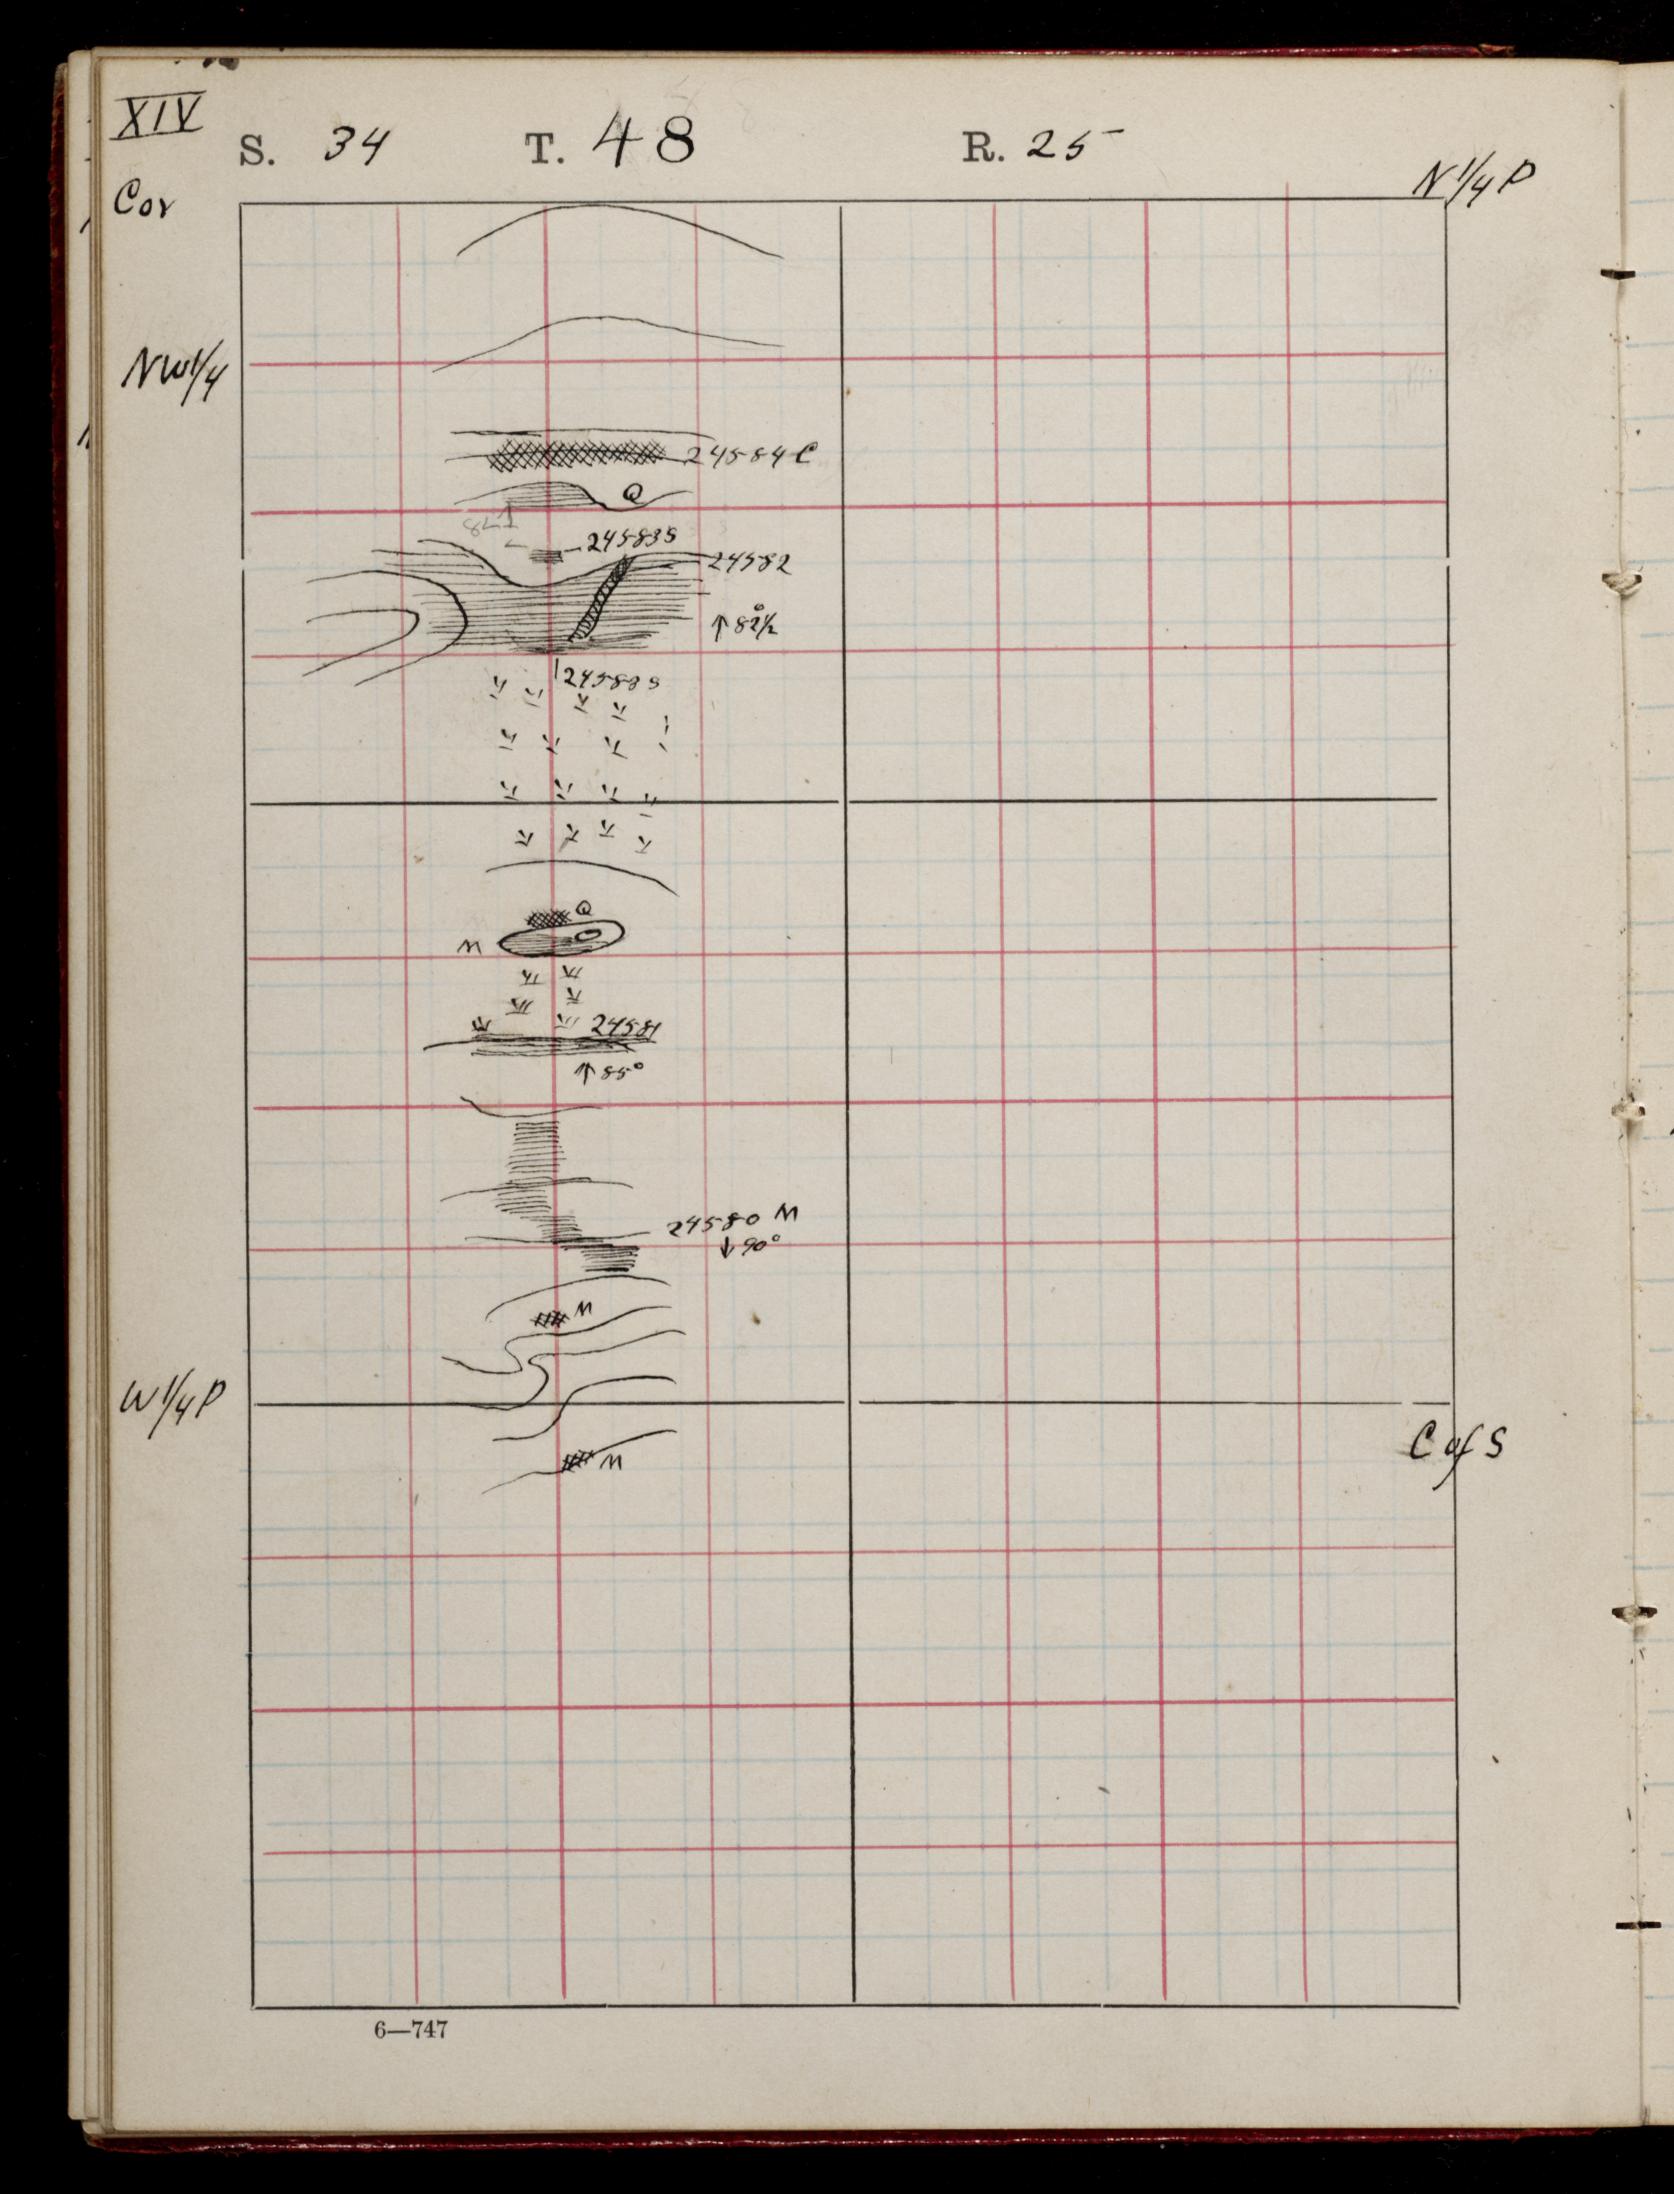 XIV
S. 34 T. 48 R. 25
Cor
N 1/4 P
NW 1/4
24584 C
Q
24583S
24582
↑ 82½°
24583 S
Q
M
24581
↑ 85°
24580 M
↓ 90°
M
W 1/4 P
C of S
M
6—747